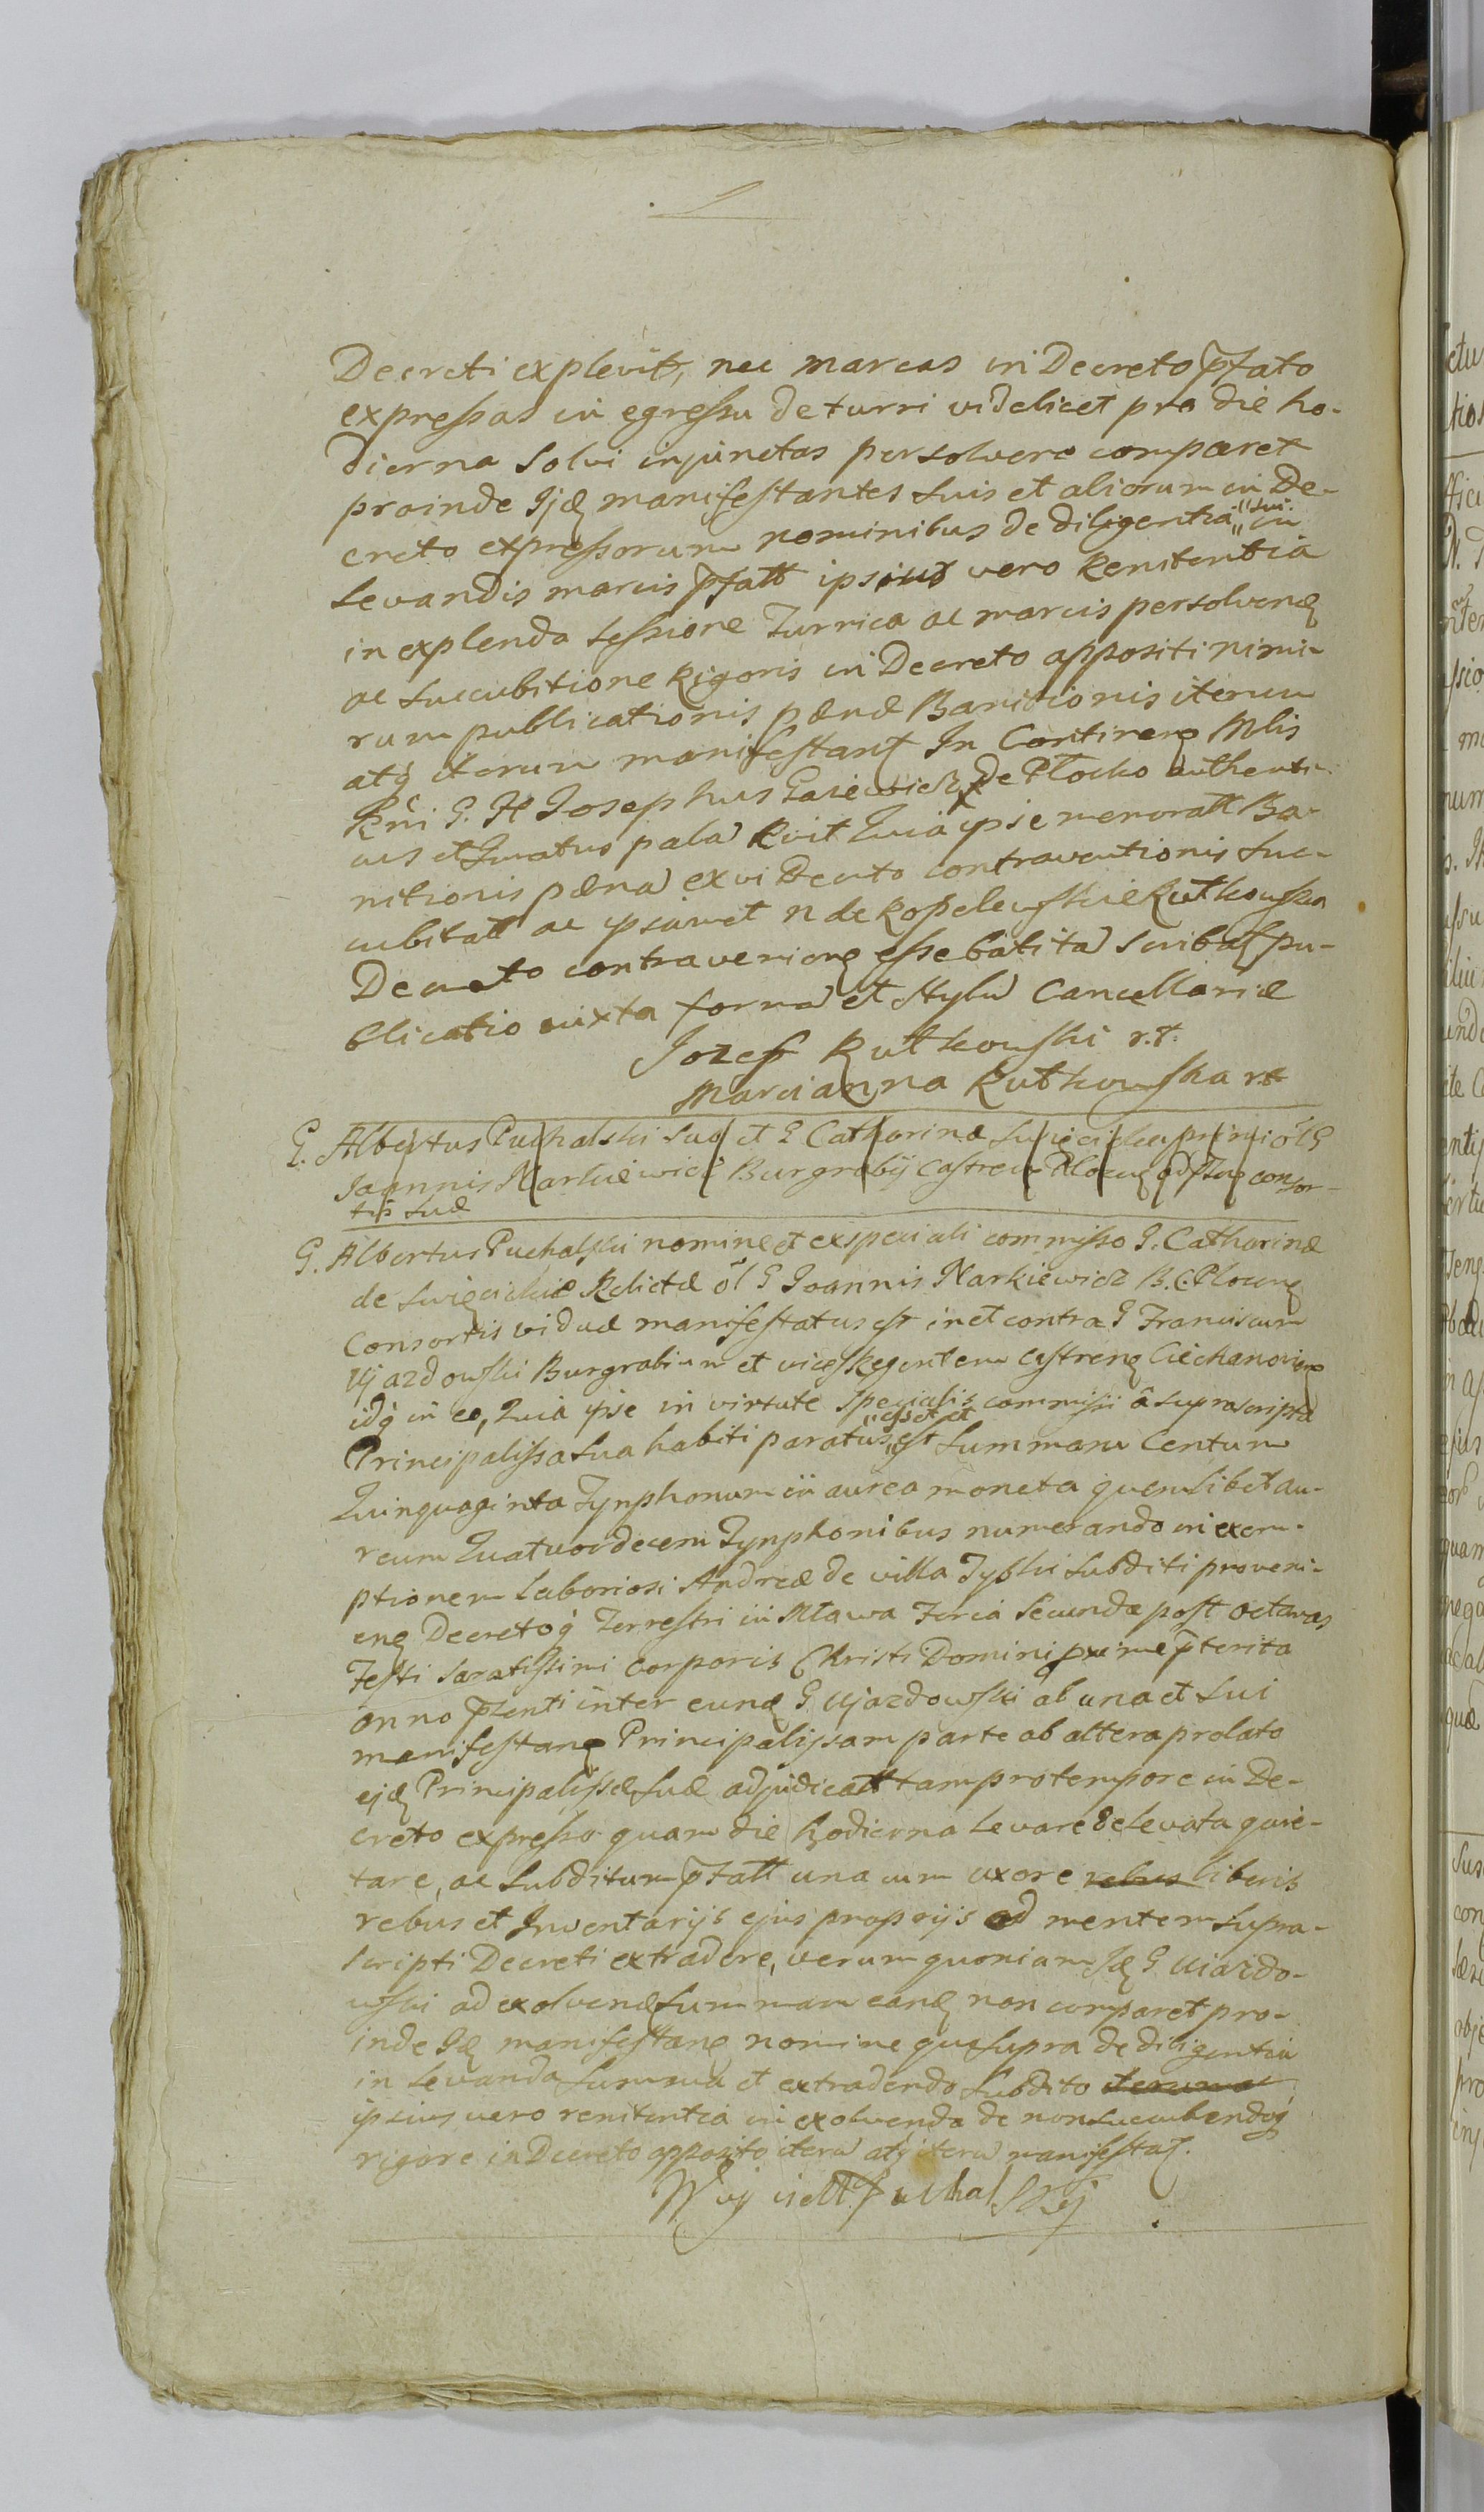 Decreti explevit, nec marcas in Decreto pfato
expressas in egressu de turri videlicet pro die ho-
dierna solvi injunctas persolvere comparet
proinde Ijdę manifestantes suis et aliorum in De-
creto expressorum nominibus de diligentia "sui" in
levandis marcis pfatt ipsius vero Renitentia
in explenda sessione Turrica ac marcis persolvenę
ac succubitione Rigoris in Decreto appositi nimi-
rum publicationis pænæ Banitionis iterum
atq iterum manifestant In Contineng Mlis
Rni G. Josephus de Plocko authenti-
cus et Juratus pala Rvit Quia ipse memoratt Ba-
nitionis pæna ex vi Decreto contraventionis suc-
cubitatt ac ipsamet n de Rutkowska
Decreto contravenieng esse batita scribaę pu-
blicatio juxta forma et stylu Cancellariæ
Jozef Rutkowski r.t.
Marcianna Rutkowska rt
G. Albertus Puchalski suo et G Catharinæ primi ol G
Joannis Narkiewicz Burgrabij Castren Plocen consor-
tis suæ
G. Albertus Puchalski nomine et ex speciali commisso G. Catharinæ
de Relictæ ol G Joannis Narkiewicz B. C. Plocenę
Consortis viduæ manifestatus est in et contra G Franciscum
Ujazdowski Burgrabium et vices Regentem Castrenę Ciechanovieng
idq in eo, Quia ipse in virtute specialis commissi â suprascripta
Principalissa sua habiti paratus "esset et" est summam Centum
Quinquaginta Tynphonum in aurea moneta quemlibet au-
reum Quatuordecem Tynphonibus numerando in exem-
ptionem laboriosi Andreæ de villa Tyblu subditi proveni-
enę Decretoq Terrestri in Mława Feria secunda post octavas
Festi sacratissimi Corporis Christi Domini pxime pterita
anno pzenti inter eunę G Ujazdowski ab una et sui
manifestang Principalissam parte ab altera prolato
ejdę Principalissæ suæ adjudicatt tam pro tempore in De-
creto expresso quam die hodierna levare & levata quie-
tare, ac subditum pfatt una cum uxore rebus liberis
rebus et Inventarijs ejus proprijs ad mentem supra-
scripti Decreti extradere, verum quoniam Idę G Uiazdo-
wski ad exolvenę summam eanę non comparet pro-
inde Idę manifestang nomine quo supra de diligentia
in levanda summa et extradendo subdito iterum
ipsius vero renitentia in exolvenda de non succumbendoq
rigore in Decreto apposito iteru atq iteru manifestat.
Woyciech Puchalskij